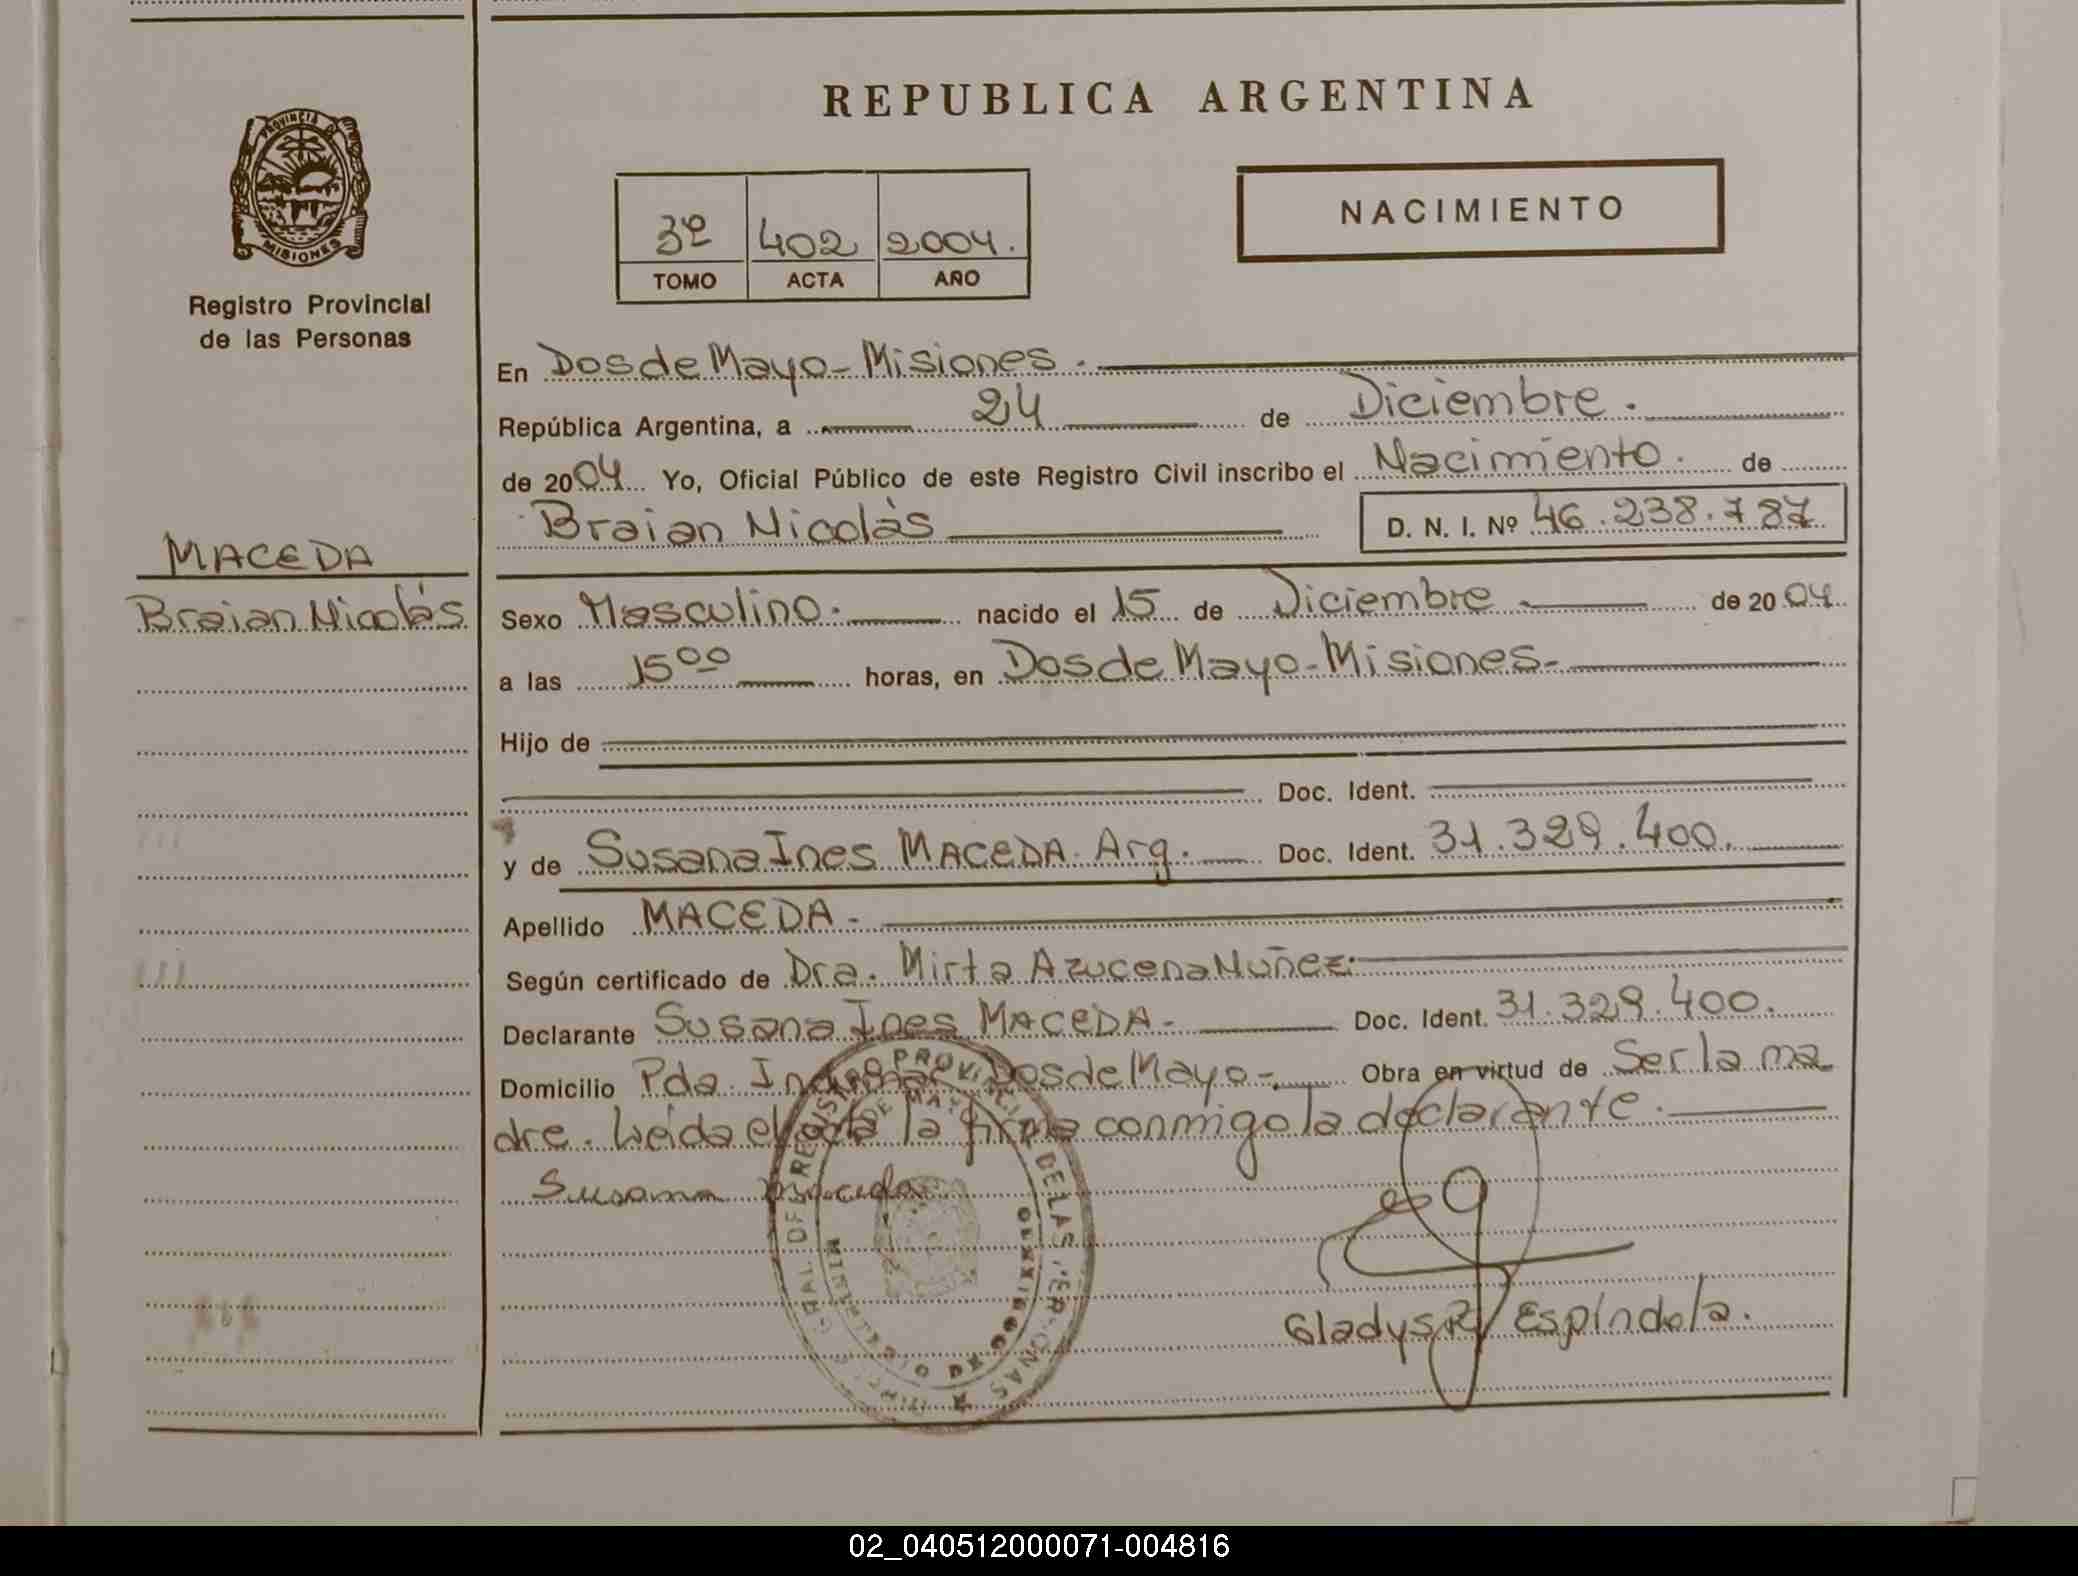 REPUBLICA ARGENTINA
PROVINCIA DE
MISIONES
Registro Provincial
de las Personas
3º 402 2004.
TOMO ACTA AÑO
NACIMIENTO
En Dos de Mayo - Misiones.
República Argentina, a 24 de Diciembre.
de 2004 Yo, Oficial Público de este Registro Civil inscribo el Nacimiento. de
Braian Nicolàs D. N. I. Nº 46.238.787
MACEDA
Braian Nicolás
Sexo Masculino. nacido el 15 de Diciembre de 2004
a las 15⁰⁰ horas, en Dos de Mayo - Misiones-
Hijo de
Doc. Ident.
y de Susana Ines MACEDA. Arg. Doc. Ident. 31.329.400.
Apellido MACEDA -
Según certificado de Dra. Mirta Azucena Nuñez.
Declarante Susana Ines MACEDA - Doc. Ident. 31.329.400.
Domicilio Pda. Dos de Mayo - Obra en virtud de Ser la ma
dre. Leída el acta la firma conmigo la declarante.
Susana Maceda
Gladys R. Espíndola.
02_040512000071-004816